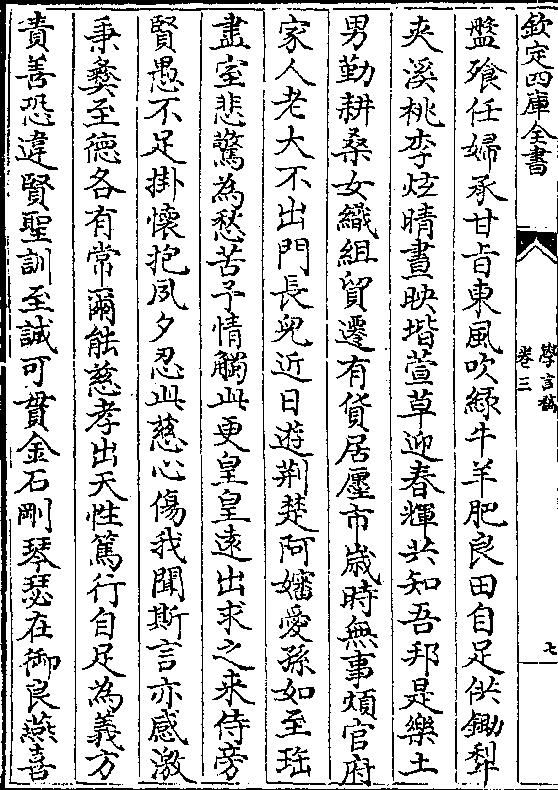 欽定四庫全書
學言稿
卷三
七
盤飱任婦承甘旨東風吹綠牛羊肥良田自足供鋤犁
夾溪桃李炫晴晝映堦萱草迎春輝共知吾邦是樂土
男勤耕桑女織組貿遷有貨居廛市歳時無事煩官府
家人老大不出門長兒近日遊荆楚阿嬸愛孫如至珤
盡室悲驚為愁苦予情觸此更皇皇遠出求之来侍旁
賢愚不足掛懷抱夙夕忍此慈心傷我聞斯言亦感激
秉彜至徳各有常爾能慈孝出天性篤行自足為義方
責善恐違賢聖訓至誠可貫金石剛琴瑟在御良燕喜